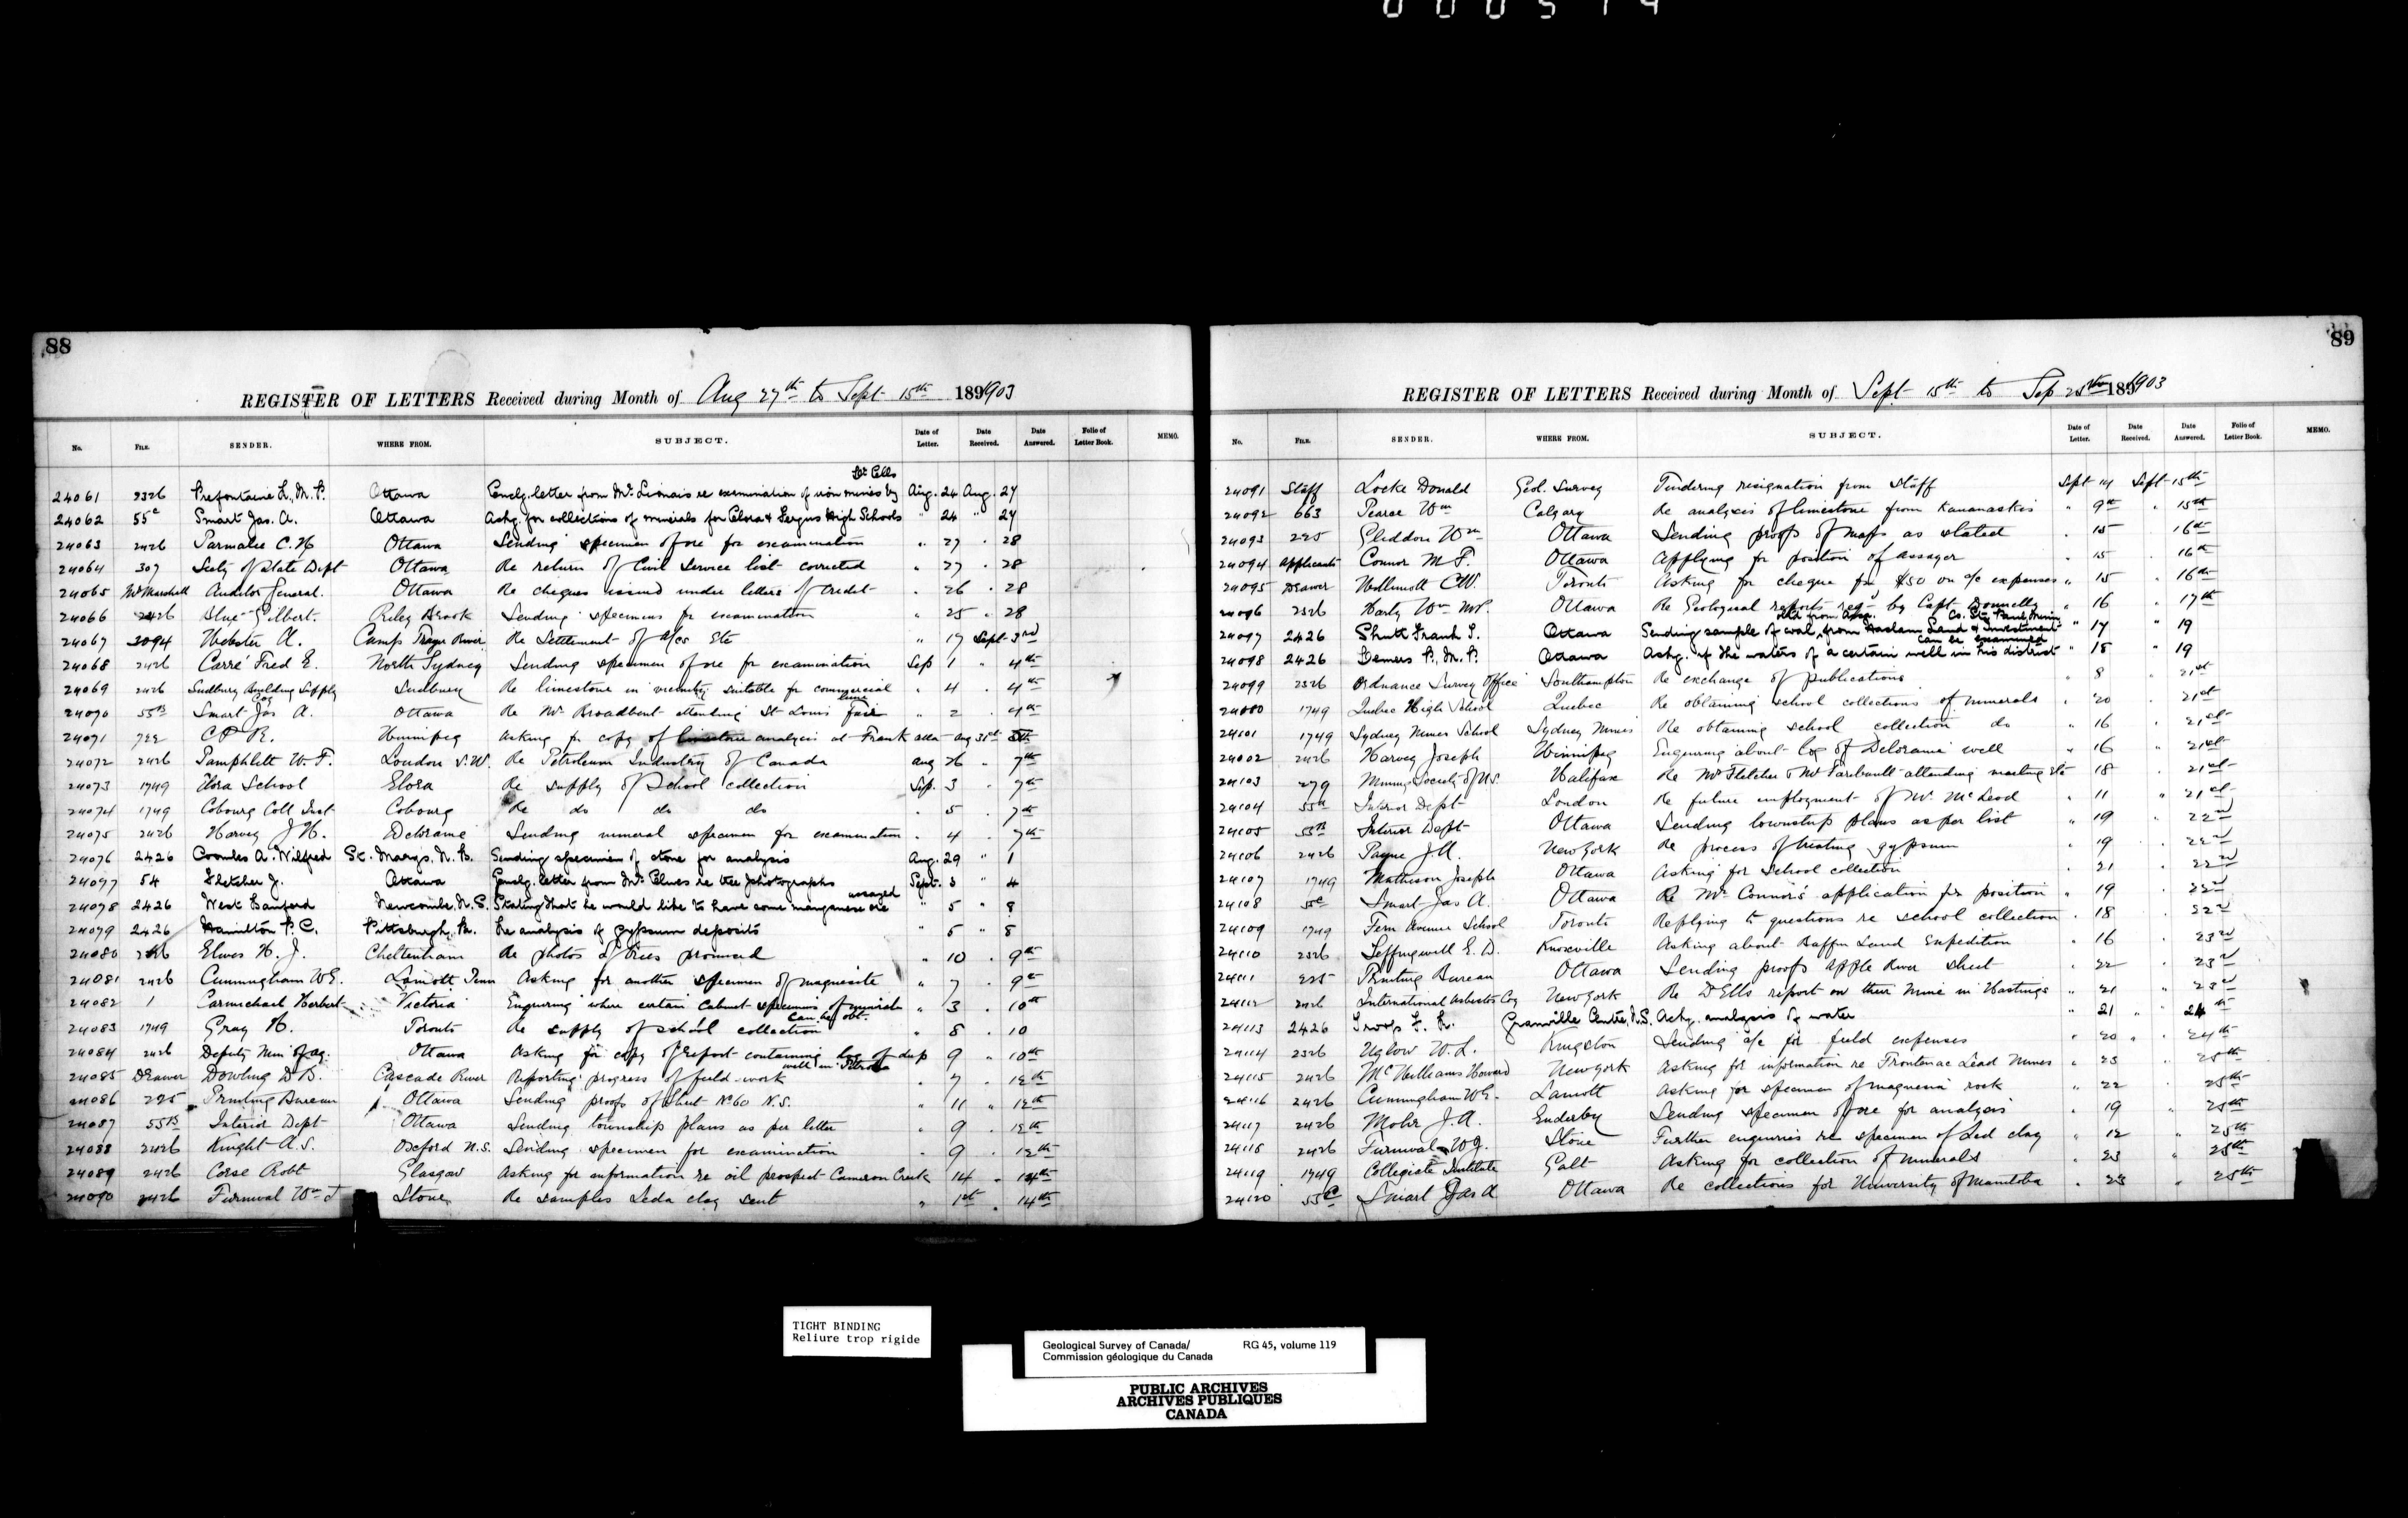 000519
88
REGISTER OF LETTERS Received during Month of Aug 27th to Sept 15th 1891903
No. FILE. SENDER. WHERE FROM. SUBJECT. Date of Letter. Date Received. Date Answered. Folio of Letter Book. MEMO.
Dr Ells
24061 2326 Prefontaine L., M.P. Ottawa Enclg. letter from Mr. Lionais re examination of iron mines by Aug. 24 Aug. 27
24062 55c Smart Jas. A. Ottawa Askg. for collections of minerals for Elora & Fergus High Schools " 24 " 27
24063 2426 Parmalee C.H Ottawa Sending specimen of ore for examination " 27 " 28
24064 307 Secty of State Dept Ottawa Re return of Civil Service list corrected " 27 " 28
24065 Mr Marshall Auditor General. Ottawa Re cheques issued under letters of credit " 26 " 28
24066 2426 Blue Gilbert. Riley Brook Sending specimens for examination " 25 " 28
24067 3094 Webster A. Camp River Re Settlement of a/cs Etc " 17 Sept 3rd
24068 2426 Carré Fred E. North Sydney Sending specimen of ore for examination Sep 1 " 4th
24069 2426 Sudbury Building Supply Coy Sudbury Re limestone in vicinity suitable for commercial lime " 4 " 4th
24070 55B Smart Jas A. Ottawa Re Mr Broadbent attending St Louis Fair " 2 " 4th
24071 722 C P R. Winnipeg Asking for copy of limestone analysis at Frank Alta Aug 31st 5th
24072 2426 Pamphlett W.F. London S.W. Re Petroleum Industry of Canada Aug 26 " 7th
24073 1749 Elora School Elora Re supply of School collection Sep. 3 " 7th
24074 1749 Cobourg Coll Inst Cobourg Re do do do " 5 " 7th
24075 2426 Harvey J H. Deloraine Sending mineral specimen for examination " 4 " 7th
24076 2426 Coombes A. Wilfred St. Marys, N.B. Sending specimen of stone for analysis Aug. 29 " 1
24077 54 Fletcher J. Ottawa Enclg. letter from Mr. Elwes re tree photographs Sept. 3 " 4
24078 2426 West Sanford Newcombe, N.S. Stating that he would like to have some manganese ore assayed " 5 " 8
24079 2426 Hamilton P.C. Pittsburgh, Pa. Re analysis of gypsum deposits " 5 " 8
24080 Elwes H.J. Cheltenham Re photos of trees promised " 10 " 9th
24081 2426 Cunningham WE. Lamott Penn Asking for another specimen of magnesite " 7 " 9th
24082 1 Carmichael Herbert Victoria Enquiring where certain cabinet specimens of minerals can be obt. " 3 " 10th
24083 1749 Gray H. Toronto Re supply of school collection " 8 " 10
24084 2426 Deputy Min of Ag. Ottawa Asking for copy of report containing log of deep well in Petrolia 9 " 10th
24085 Drawer Dowling D B. Cascade River Reporting progress of field work " 7 " 12th
24086 225 Printing Bureau Ottawa Sending proofs of Sheet No 60 N.S. " 11 " 12th
24087 55B Interior Dept Ottawa Sending township plans as per letter " 9 " 12th
24088 2426 Knight A.S. Oxford N.S. Sending specimen for examination " 9 " 12th
24089 2426 Corse Robt Glasgow Asking for information re oil prospect Cameron Creek 14 " 14th
24090 2426 Furnival Wm J Stone Re samples Leda clay sent " 1st " 14th
89
REGISTER OF LETTERS Received during Month of Sept 15th to Sep 25th 1891903
No. FILE. SENDER. WHERE FROM. SUBJECT. Date of Letter. Date Received. Date Answered. Folio of Letter Book. MEMO.
24091 Staff Locke Donald Geol. Survey Tendering resignation from Staff Sept 14 Sept 15th
24092 663 Pearce Wm Calgary Re analysis of limestone from Kananaskis " 9th " 15th
24093 225 Gliddon Wm Ottawa Sending proofs of maps as stated " 15 " 16th
24094 Applicants Connor M F. Ottawa Applying for position of assayer " 15 " 16th
24095 Drawer Willimott CW. Toronto Asking for cheque for $50 on a/c expenses " 15 " 16th
24096 2326 Harty Wm MP. Ottawa Re Geological reports reqd by Capt Donnelly " 16 " 17th
24097 2426 Shutt Frank T. Ottawa Sending sample of coal, from Haslam Land & Investment Co. St. Paul, Minn. " 17 " 19
24098 2426 Demers P., M.P. Ottawa Askg. if the waters of a certain well in his district can be examined " 18 " 19
24099 2326 Ordnance Survey Office Southampton Re exchange of publications " 8 " 21st
24080 1749 Quebec High School Quebec Re obtaining school collections of minerals " 20 " 21st
24101 1749 Sydney Mines School Sydney Mines Re obtaining school collection do " 16 " 21st
24002 2426 Harvey Joseph Winnipeg Enquiring about log of Deloraine well " 16 " 21st
24103 279 Mining Society of N.S. Halifax Re Mr Fletcher & Mr Faribault attending meeting etc 18 " 21st
24104 Interior Dept London Re future employment of Mr. McLeod " 11 " 21st
24105 55B Interior Dept Ottawa Sending township plans as per list " 19 " 22nd
24106 2426 Payne J.A. New York Re process of treating gypsum " 19 " 22nd
24107 1749 Mathison Joseph Ottawa Asking for School collection " 21 " 22nd
24108 55c Smart Jas A. Ottawa Re Mr Connor's application for position " 19 " 22nd
24109 1749 Fern Avenue School Toronto Replying to questions re school collection " 18 " 22nd
24110 2326 Leffingwell E. D. Knoxville Asking about Baffin Land Expedition " 16 " 23rd
24111 225 Printing Bureau Ottawa Sending proofs Apple River sheet " 22 " 23rd
24112 2426 International Asbestos Coy New York Re Dr Ells report on their mine in Hastings " 21 " 23rd
24113 2426 Troop F. R. Granville Centre, N.S. Askg. analysis of water " 21 " 24th
24114 2326 Uglow W.L. Kingston Sending a/c for field expenses " 20 " 24th
24115 2426 McWilliams Howard New York Asking for information re Frontenac Lead Mines " 23 " 25th
24116 2426 Cunningham W.E. Lamott Asking for specimen of magnesia rock " 22 " 25th
24117 2426 Mohr J.A. Enderby Sending specimen of ore for analysis " 19 " 25th
24118 2426 Furnival W.J. Stone Further enquiries re specimen of Led clay " 12 " 25th
24119 1749 Collegiate Institute Galt Asking for collection of minerals " 23 " 25th
24120 55c Smart Jas A Ottawa Re collections for University of Manitoba " 23 " 25th
TIGHT BINDING
Reliure trop rigide
Geological Survey of Canada/ RG 45, volume 119
Commission géologique du Canada
PUBLIC ARCHIVES
ARCHIVES PUBLIQUES
CANADA